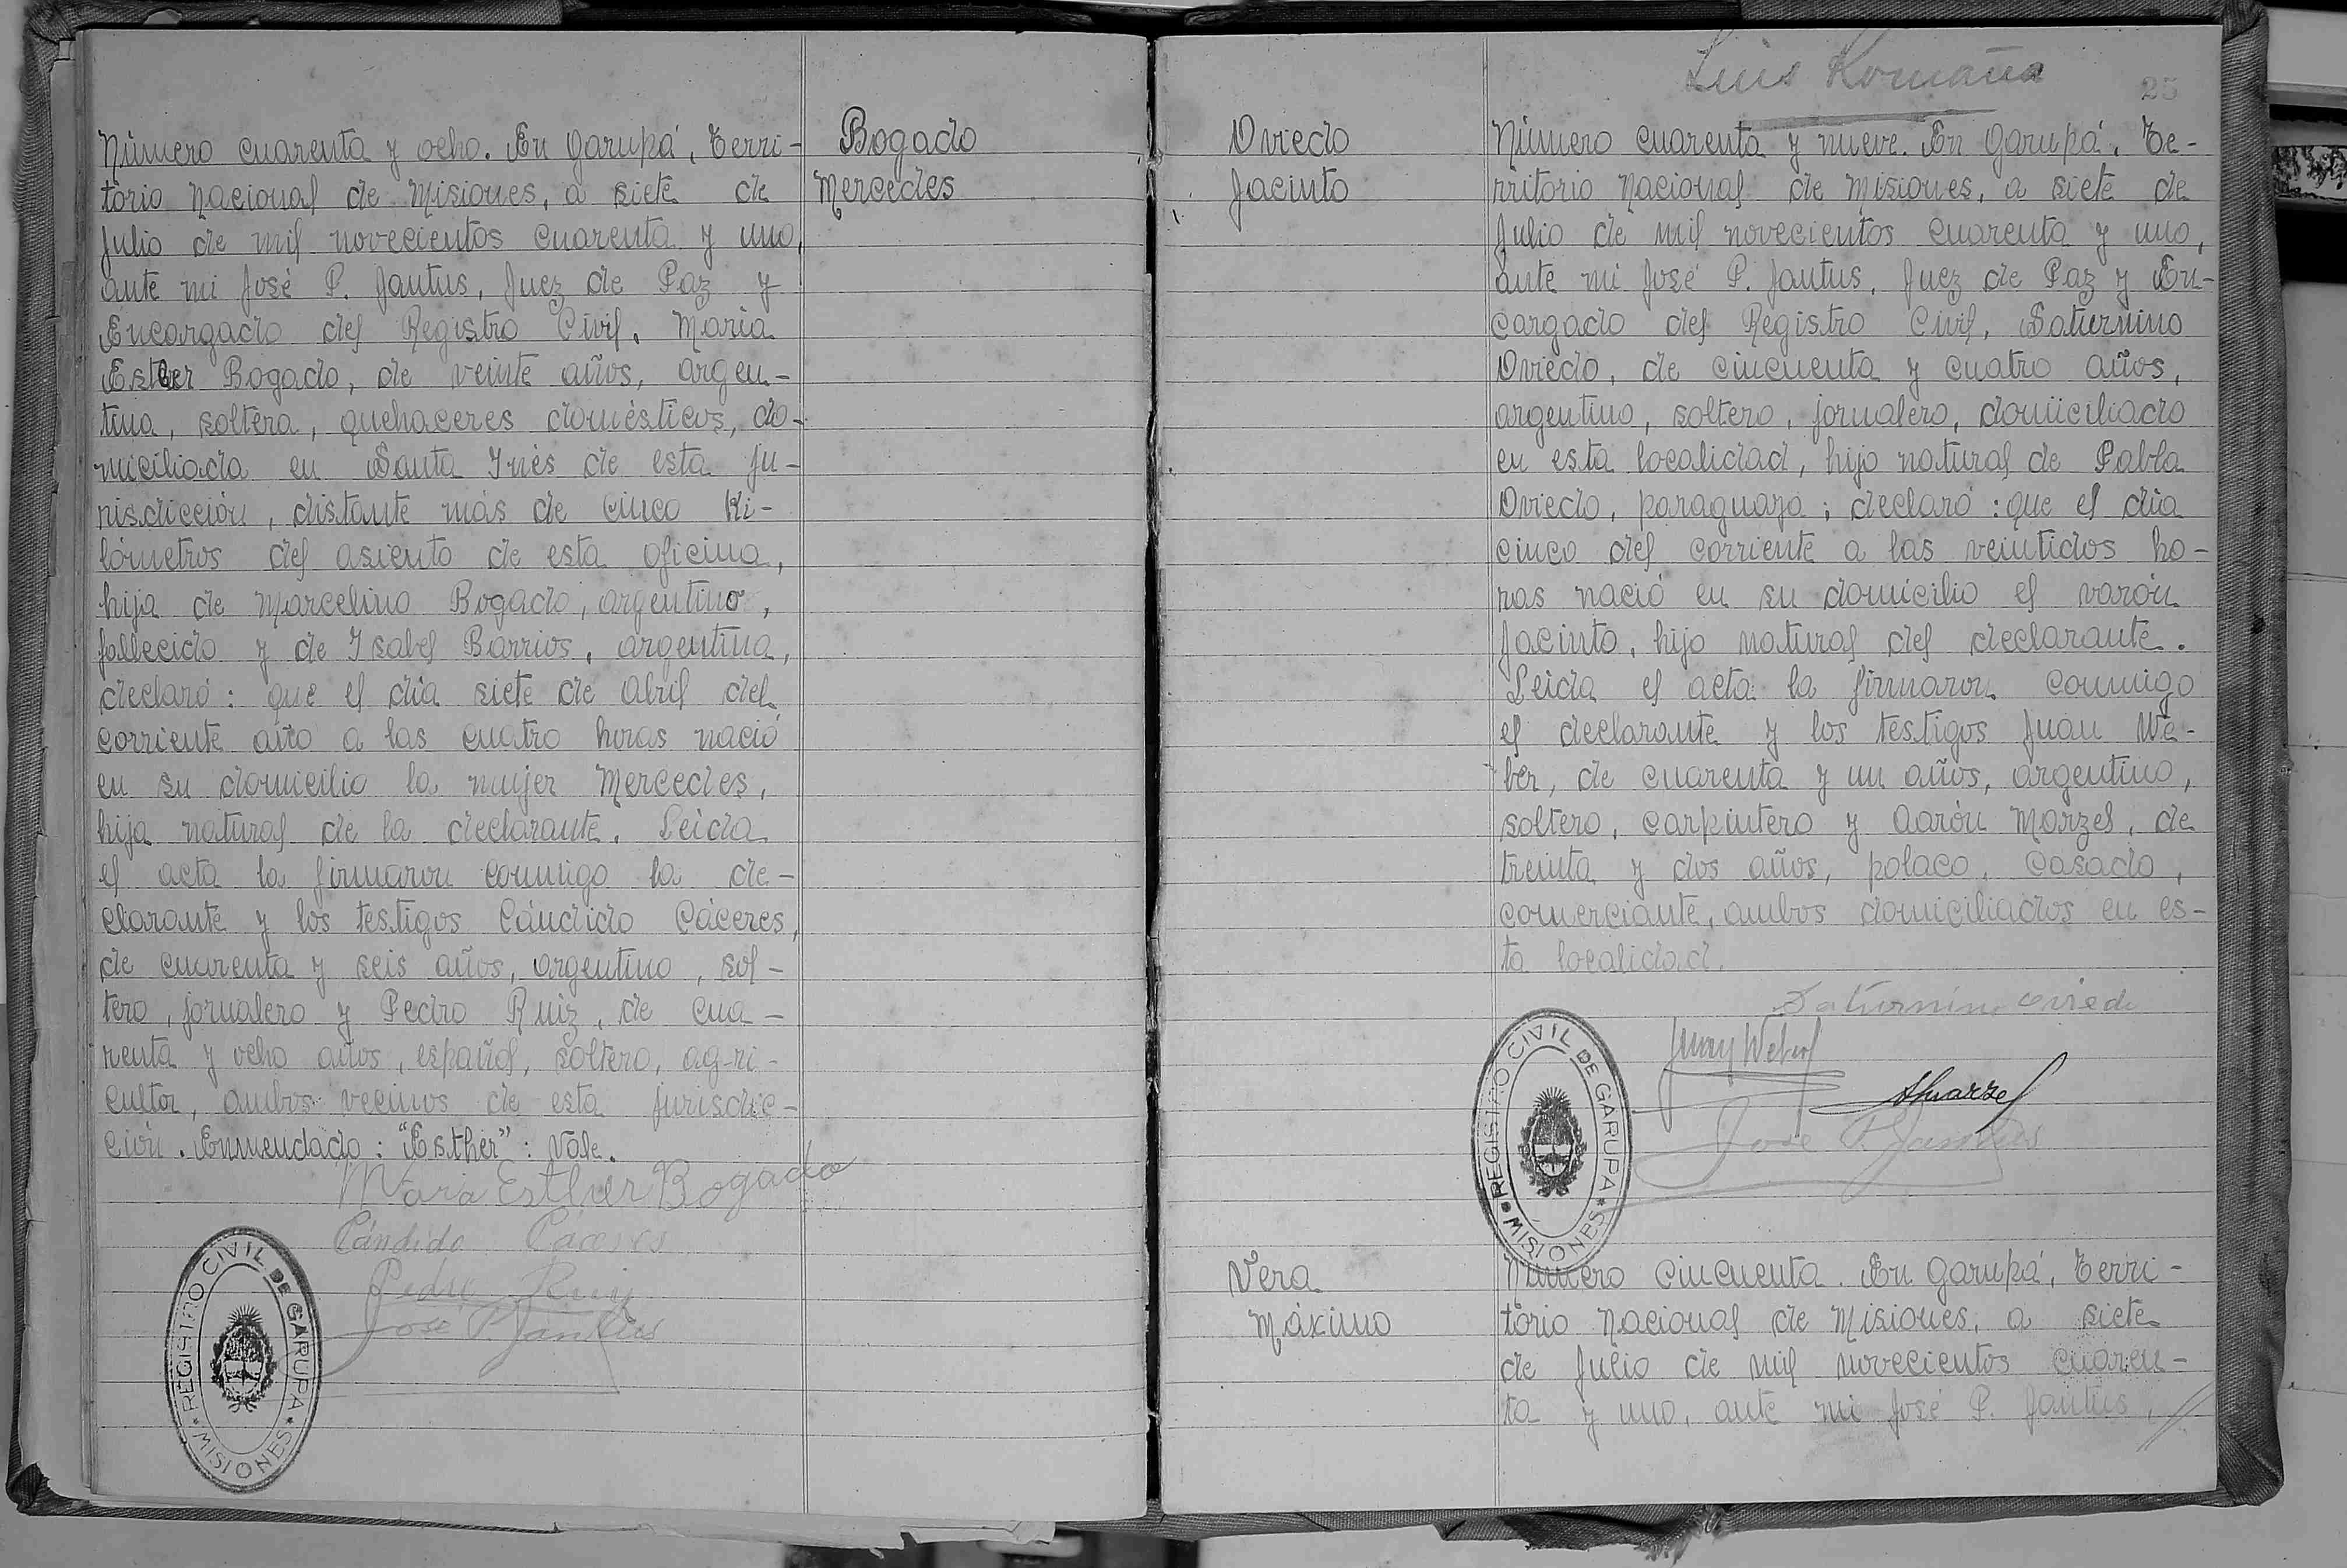 Número cuarenta y ocho. En Garupá, Terri-
torio Nacional de Misiones, a siete de
Julio de mil novecientos cuarenta y uno,
ante mi José P. Jantus, Juez de Paz y
Encargado del Registro Civil, María
Esther Bogado, de veinte años, argen-
tina, soltera, quehaceres domésticos, do-
miciliada en Santa Inés de esta ju-
risdicción, distante más de cinco ki-
lómetros del asiento de esta oficina,
hija de Marcelino Bogado, argentino,
fallecido y de Isabel Barrios, argentina,
declaró: que el día siete de Abril del
corriente año a las cuatro horas nació
en su domicilio la mujer Mercedes,
hija natural de la declarante. Leida
el acta la firmaron conmigo la de-
clarante y los testigos Cándido Cáceres,
de cuarenta y seis años, argentino, sol-
tero, jornalero y Pedro Ruiz, de cua-
renta y ocho años, español, soltero, agri-
cultor, ambos vecinos de esta jurisdic-
ción. Enmendado: "Esther": Vale.
Bogado
Mercedes
Mara Esther Bogado
Cándido Cáceres
Pedro Ruiz
José P. Jantus
REGISTRO CIVIL DE GARUPA
* MISIONES *
Luis Romaña
25
Oviedo
Jacinto
Número cuarenta y nueve. En Garupá, Te-
rritorio Nacional de Misiones, a siete de
Julio de mil novecientos cuarenta y uno,
ante mi José P. Jantus, Juez de Paz y En-
cargado del Registro Civil, Saturnino
Oviedo, de cincuenta y cuatro años,
argentino, soltero, jornalero, domiciliado
en esta localidad, hijo natural de Pabla
Oviedo, paraguaya; declaró: que el día
cinco del corriente a las veintidos ho-
ras nació en su domicilio el varón
Jacinto, hijo natural del declarante.
Leida el acta la firmaron conmigo
el declarante y los testigos Juan We-
ber, de cuarenta y un años, argentino,
soltero, carpintero y Aarón Marzel, de
treinta y dos años, polaco, casado,
comerciante, ambos domiciliados en es-
ta localidad.
Saturnino Oviedo
Juan Weber
AMarzel
José P. Jantus
REGISTRO CIVIL DE GARUPA
* MISIONES *
Vera
Máximo
Número cincuenta. En Garupá, Terri-
torio Nacional de Misiones, a siete
de Julio de mil novecientos cuaren-
ta y uno, ante mi José P. Jantus, //